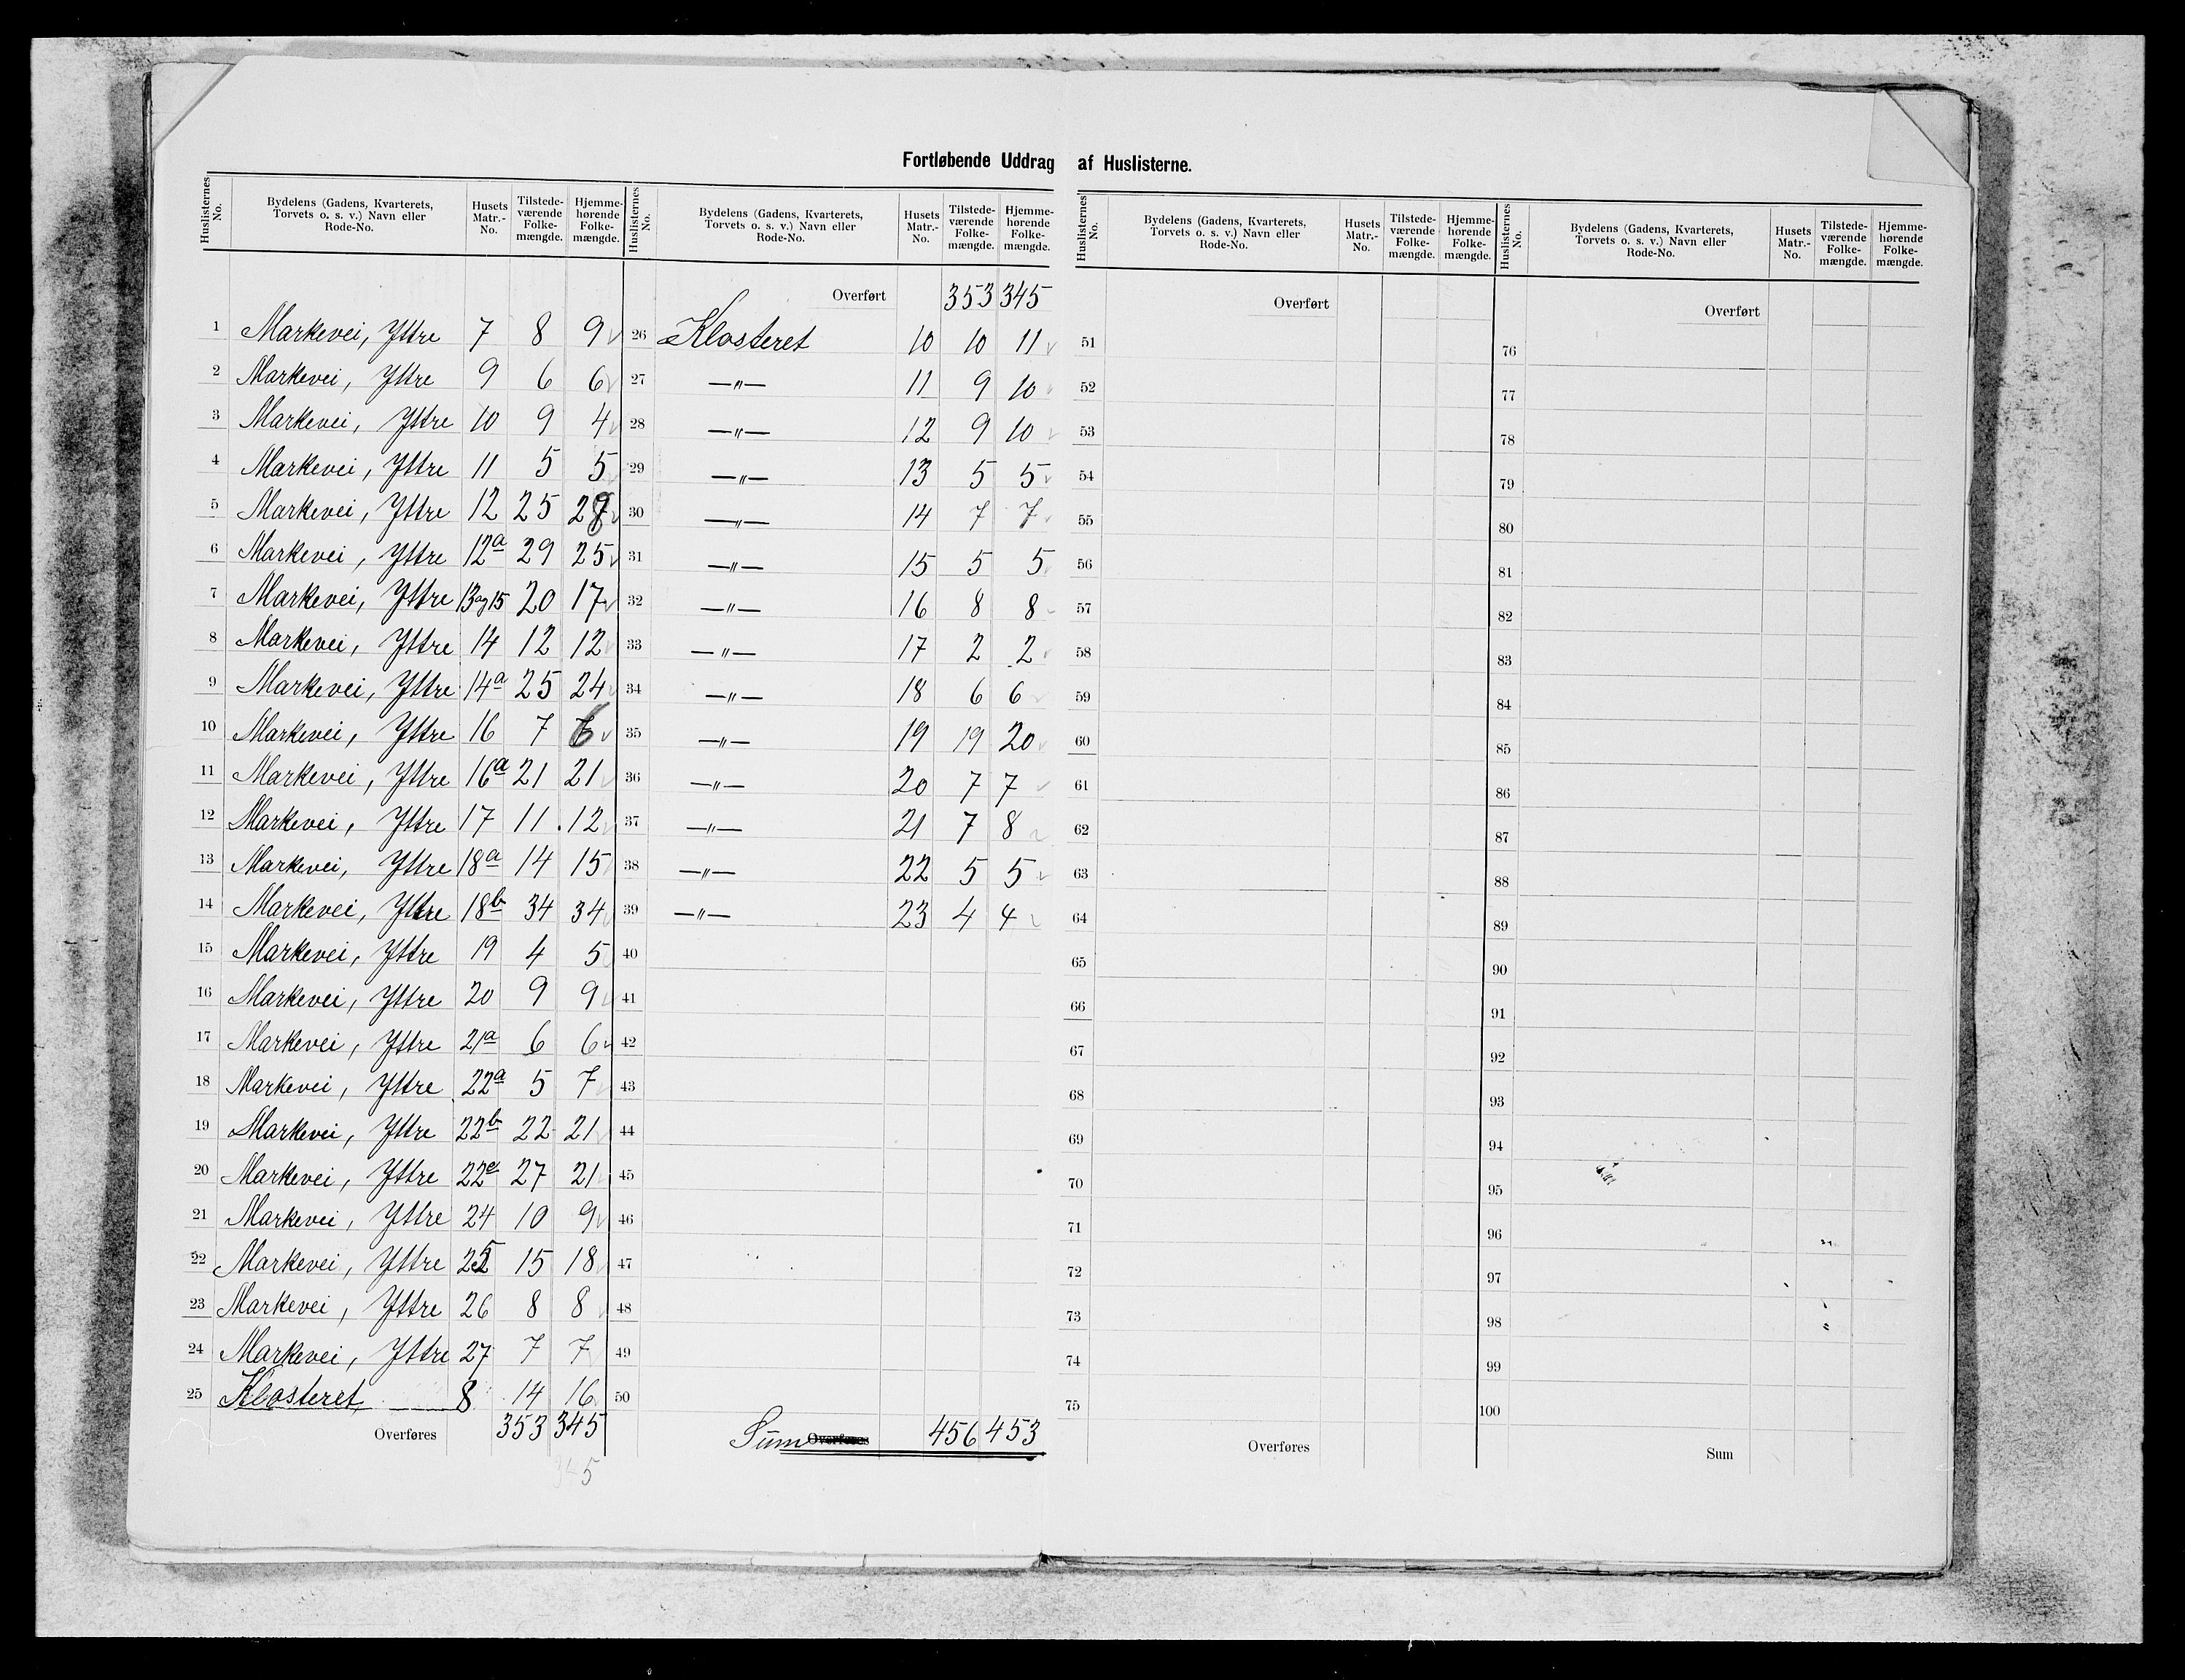 Fortløbende Uddrag af Huslisterne.
Huslisternes No. Bydelens (Gadens, Kvarterets, Torvets o. s. v.) Navn eller Rode-No. Husets Matr.-No. Tilstede-værende Folke-mængde. Hjemme-hørende Folke-mængde.
1 Markevei, Yttre 7 8 9
2 Markevei, Yttre 9 6 6
3 Markevei, Yttre 10 9 4
4 Markevei, Yttre 11 5 5
5 Markevei, Yttre 12 25
6 Markevei, Yttre 12a 29 25
7 Markevei, Yttre 13og15 20 17
8 Markevei, Yttre 14 12 12
9 Markevei, Yttre 14a 25 24
10 Markevei, Yttre 16 7 6
11 Markevei, Yttre 16a 21 21
12 Markevei, Yttre 17 11 12
13 Markevei, Yttre 18a 14 15
14 Markevei, Yttre 18b 34 34
15 Markevei, Yttre 19 4 5
16 Markevei, Yttre 20 9 9
17 Markevei, Yttre 21a 6 6
18 Markevei, Yttre 22a 5 7
19 Markevei, Yttre 22b 22 21
20 Markevei, Yttre 27 21
21 Markevei, Yttre 24 10 9
22 Markevei, Yttre 25 15 18
23 Markevei, Yttre 26 8 8
24 Markevei, Yttre 27 7 7
25 Klosteret 8 14 16
Overføres 353 345
345
Huslisternes No. Bydelens (Gadens, Kvarterets, Torvets o. s. v.) Navn eller Rode-No. Husets Matr.-No. Tilstede-værende Folke-mængde. Hjemme-hørende Folke-mængde.
Overført 353 345
26 Klosteret 10 10 11
27 —"— 11 9 10
28 —"— 12 9 10
29 —"— 13 5 5
30 —"— 14 7 7
31 —"— 15 5 5
32 —"— 16 8 8
33 —"— 17 2 2
34 —"— 18 6 6
35 —"— 19 19 20
36 —"— 20 7 7
37 —"— 21 7 8
38 —"— 22 5 5
39 —"— 23 4 4
40
41
42
43
44
45
46
47
48
49
50
Sum Overføres 456 453
Huslisternes No. Bydelens (Gadens, Kvarterets, Torvets o. s. v.) Navn eller Rode-No. Husets Matr.-No. Tilstede-værende Folke-mængde. Hjemme-hørende Folke-mængde.
Overført
51
52
53
54
55
56
57
58
59
60
61
62
63
64
65
66
67
68
69
70
71
72
73
74
75
Overføres
Huslisternes No. Bydelens (Gadens, Kvarterets, Torvets o. s. v.) Navn eller Rode-No. Husets Matr.-No. Tilstede-værende Folke-mængde. Hjemme-hørende Folke-mængde.
Overført
76
77
78
79
80
81
82
83
84
85
86
87
88
89
90
91
92
93
94
95
96
97
98
99
100
Sum